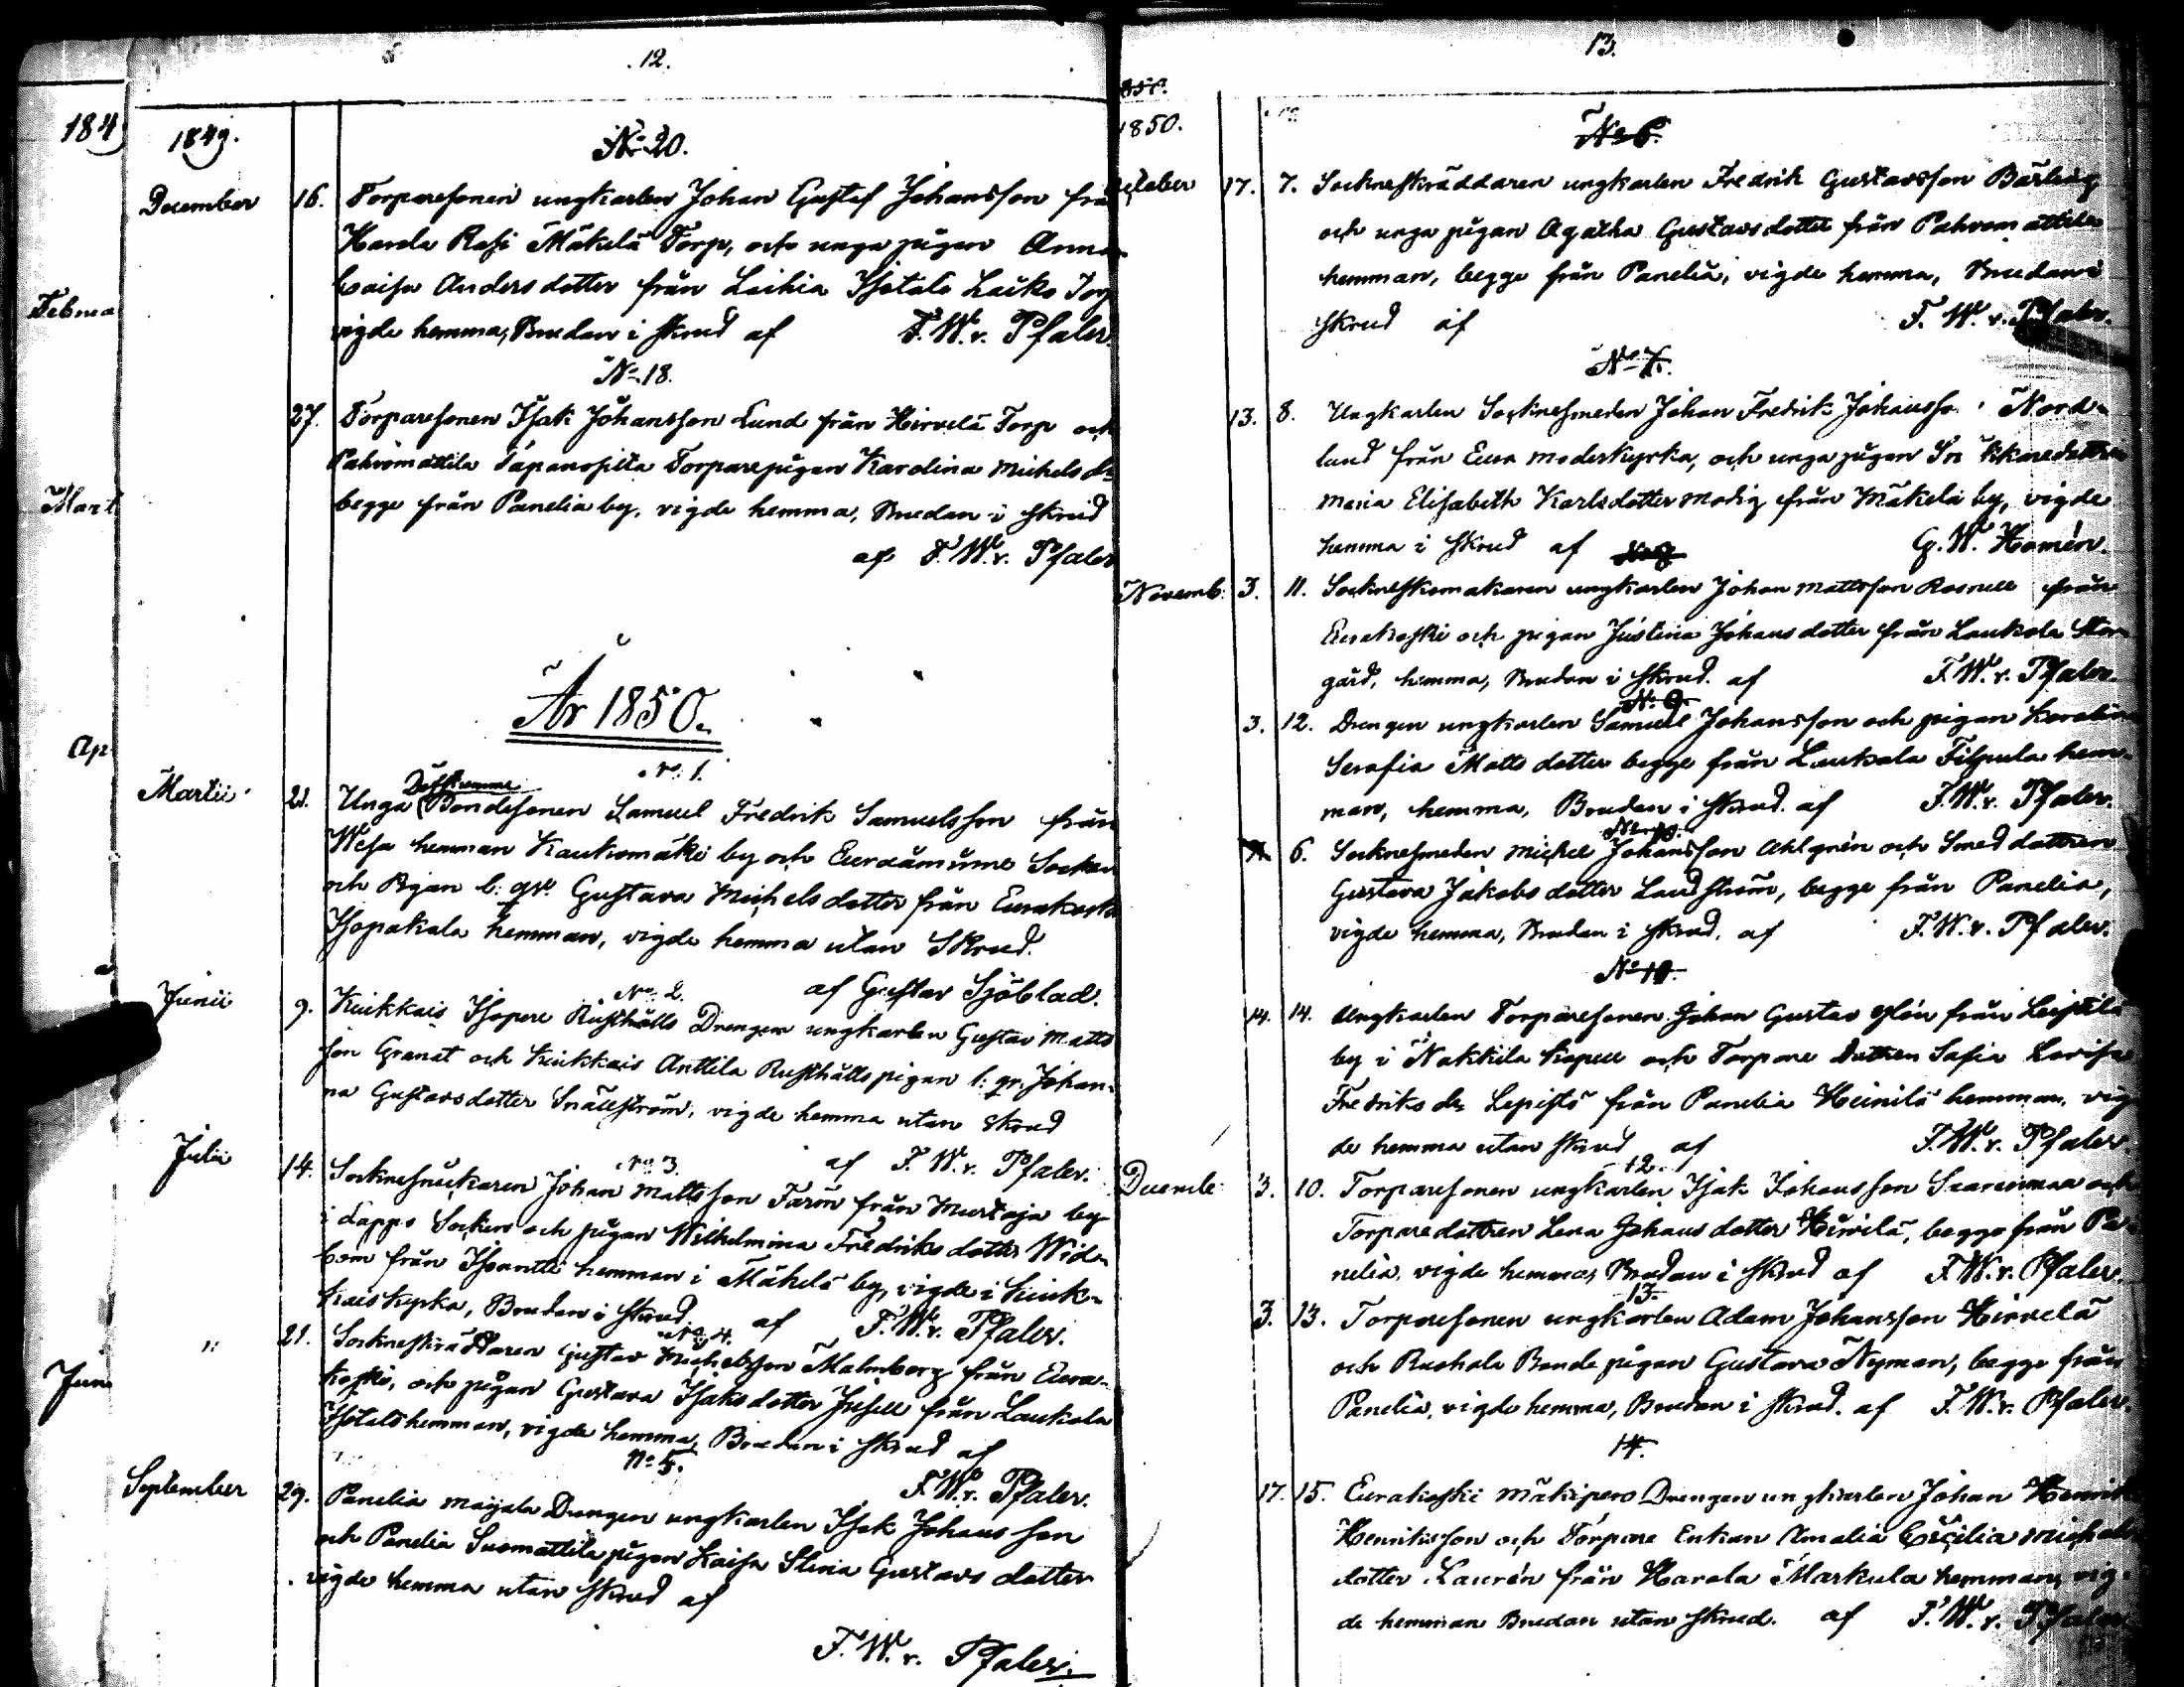 12.
184
1849.
No 20.
December 16. Torparesonen ungkarlen Johan Gustaf Johansson frå
Harola Rasi Mäkelä Torp, och unga pigan Anna
Caisa Andersdotter från Laihia Isotalo Laiko Torp
vigde hemma, Bruden i skrud af F. W. v. Pfaler.
Februa
No 18.
27. Torparesonen Isak Johansson Lund från Hirvelä Torp och
Pahvomattila Tapanosilta Torparepigan Karolina Michelsd=
begge från Panelia by, vigde hemma, Bruden i skrud
af F. W. v. Pfaler
Mart
År 1850.
Ap
No 1.
Döfstumme
Martii 21. Unga Bondesonen Samuel Fredrik Samuelsson från
Wesa hemman Kaukomäki by och Euraåminne Socken
och Pigan b: qv. Gustava Michelsdotter från Eurakoski
Isopakala hemman, vigde hemma utan Skrud.
af Gustav Sjöblad.
No 2.
Junii 9. Kiukkais Isopere Rusthålls Drengen ungkarlen Gustav Matts
son Granat och Kiukkais Anttila Rusthålls pigan b: qv. Johan-
na Gustavsdotter Snällström, vigde hemma utan skrud
af F. W. v. Pfaler.
No 3.
Julii 14. Socknesnickaren Johan Mattsson Farm från Murtaja by
i Lappo Socken och pigan Wilhelmina Fredriksdotter Wid-
bom från Isoantti hemman i Mäkelä by, vigde i Kiuk-
kais kyrka, Bruden i skrud af F. W. v. Pfaler.
No 4.
" 21. Sockneskräddaren Gustav Michelsson Malmberg från Eura-
koski, och pigan Gustava Isaksdotter Jusell från Laukola
Isotalo hemman, vigde hemma, Bruden i skrud af
F. W. v. Pfaler.
Jun
No 5.
September 29. Panelia Maijala Drengen ungkarlen Isak Johansson
och Panelia Suomattila pigan Kaisa Stina Gustavsdotter
vigde hemma utan skrud af
F. W. v. Pfaler.
13.
1850.
No 6.
October 17. 7. Sockneskräddaren ungkarlen Fredrik Gustavsson Bärling
och unga pigan Agatha Gustavsdotter från Pahvomattila
hemman, begge från Panelia, vigde hemma, Bruden i
skrud af F. W. v. Pfaler.
No 7.
13. 8. Ungkarlen Socknesmeden Johan Fredrik Johansso Nord-
lund från Eura moderkyrka, och unga pigan
Maria Elisabeth Karlsdotter Modig från Mäkelä by, vigde
hemma i skrud af G. W. Homén.
Novemb: 3. 11. Sockneskomakaren ungkarlen Johan Mattsson Rosnell från
Eurakoski och pigan Justina Johansdotter från Laukola Stor-
gård, hemma, Bruden i skrud. af F. W. v. Pfaler.
No 9.
3. 12. Drengen ungkarlen Samuel Johansson och pigan Karolina
Serafia Mattsdotter begge från Laukola Filpula hem-
man, hemma, Bruden i skrud. af F. W. v. Pfaler.
No 10.
6. Socknesmeden Michel Johansson Ahlgrén och Smeddottren
Gustava Jakobsdotter Lundström, begge från Panelia,
vigde hemma, Bruden i skrud. af F. W. v. Pfaler.
No 10.
14. 14. Ungkarlen Torparesonen Johan Gustav Glön från Leistilä
by i Nakkila Kapell och Torpare dottren Safia Lovisa
Fredriks dr Lepistö från Panelia Heinilä hemman, vig-
de hemma utan skrud af F. W. v. Pfaler.
12.
Decembe: 3. 10. Torparesonen ungkarlen Isak Johansson Saarenmaa och
Torparedottren Lena Johansdotter Hirvilä, begge från Pa-
nelia, vigde hemma, Bruden i skrud af F. W. v. Pfaler.
13.
3. 13. Torparesonen ungkarlen Adam Johansson Hirvelä
och Ruohola Bonde pigan Gustava Nyman, begge från
Panelia, vigde hemma, Bruden i skrud. af F. W. v. Pfaler.
14.
17. 15. Eurakoski Mäkipero Drengen ungkarlen Johan Henrik
Henriksson och Torpare Enkan Amalia Cecilia Michels
dotter Laurén från Harola Markula hemman, vig-
de hemman Bruden utan skrud. af F. W. v. Pfaler